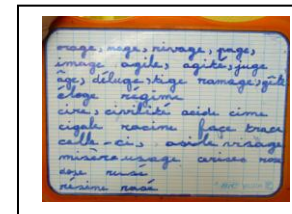 orage, nage, rivage, page,
image agile, agité, juge
âge, déluge, tige ramage, gîte
éloge régime
cire, civilité acide cime
cigale racine face trace
celle-ci, asile visage
misère usage cerises rose
dose ruse
résine rasé